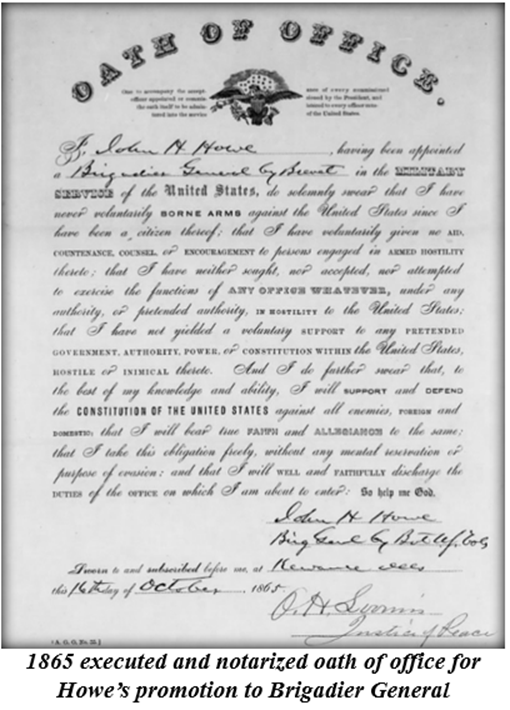 OATH OF OFFICE.
One to accompany the accept-
officer appointed or commis-
the oath itself to be admin-
tered into the service
ance of every commissioned
sioned by the President, and
istered to every officer mus-
of the United States.
I, John H Howe, having been appointed
a Brigadier General by Brevet in the MILITARY
SERVICE of the United States, do solemnly swear that I have
never voluntarily BORNE ARMS against the United States since I
have been a citizen thereof; that I have voluntarily given no AID,
COUNTENANCE, COUNSEL, or ENCOURAGEMENT to persons engaged in ARMED HOSTILITY
thereto; that I have neither sought, nor accepted, nor attempted
to exercise the functions of ANY OFFICE WHATEVER, under any
authority, or pretended authority, IN HOSTILITY to the United States;
that I have not yielded a voluntary SUPPORT to any PRETENDED
GOVERNMENT, AUTHORITY, POWER, or CONSTITUTION WITHIN the United States,
HOSTILE OR INIMICAL thereto. And I do further swear that, to
the best of my knowledge and ability, I will SUPPORT and DEFEND
the CONSTITUTION OF THE UNITED STATES against all enemies, FOREIGN and
DOMESTIC; that I will bear true FAITH and ALLEGIANCE to the same;
that I take this obligation freely, without any mental reservation or
purpose of evasion; and that I will WELL and FAITHFULLY discharge the
DUTIES of the OFFICE on which I am about to enter: So help me God.
John H Howe
Brig Genl by Bvt
Sworn to and subscribed before me, at Kewanee Ills
this 16th day of October, 1865.
O. H. Loomis
Justice of Peace
1865 executed and notarized oath of office for
Howe's promotion to Brigadier General